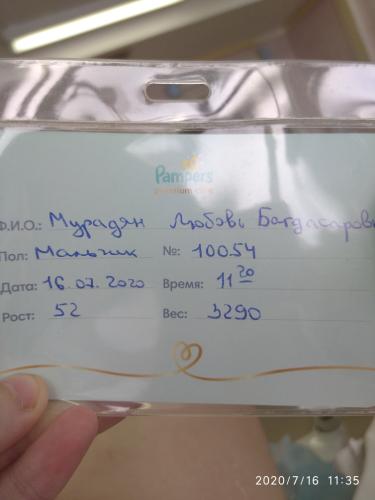 Pampers
premium care
Ф.И.О.: Мурадян Любовь Багдасаровн
Пол: Мальчик №: 10054
Дата: 16.07.2020 Время: 11 20
Рост: 52 Вес: 3290
2020/7/16 11:35